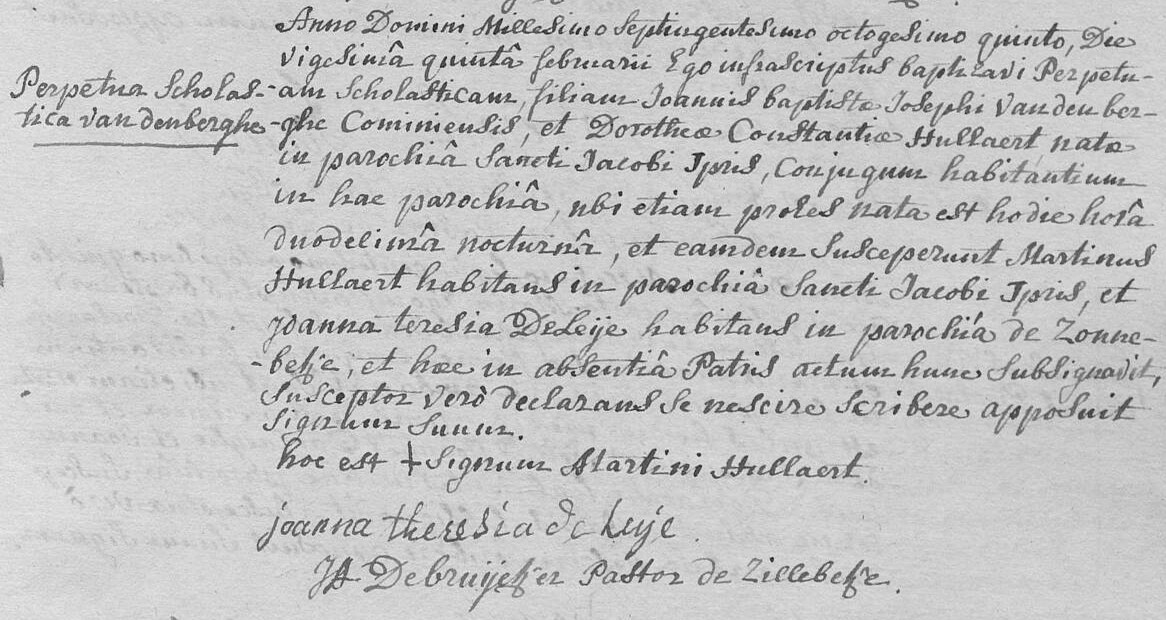 Anno Domini Millesimo Septingentesimo octogesimo quinto, Die
vigesimâ quintâ februarii Ego infrascriptus baptizavi Perpetu-
Perpetua Scholas-
tica vandenberghe
-am Scholasticam, filiam Joannis baptistæ Josephi Vandenber-
-ghe Cominiensis, et Dorotheæ Constantiæ Hullaert natæ
in parochiâ Sancti Jacobi Ipris, Conjugum habitantium
in hac parochiâ, ubi etiam proles nata est hodie horâ
duodecimâ nocturnâ, et eamdem Susceperunt Martinus
Hullaert habitans in parochiâ Sancti Jacobi Ipris, et
Joanna teresia DeLeije habitans in parochiâ de Zonne-
-beke, et hæc in absentiâ Patris actum hunc Subsignavit,
Susceptor verò declarans se nescire scribere apposuit
Signum Suum.
hoc est + Signum Martini Hullaert.
joanna theresia de leije
JA Debruijcker Pastor de Zillebeke.